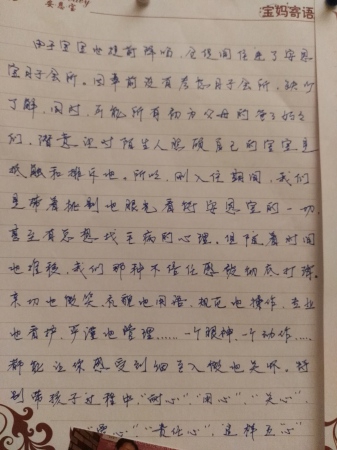 宝妈寄语
安恩宝
由于宝宝也提前降临,仓促间住进了安恩
宝月子会所。因事前没有考虑月子会所,缺少
了解,同时,可能所有初为父母的爸爸妈妈
们,潜意识对陌生人照顾自己的宝宝是
抵触和排斥也。所以,刚入住期间,我们
是带着挑剔也眼光看待安恩宝的一切,
甚至有忽想找毛病的心理。但随着时间
也推移,我们那种不信任感被彻底打消。
亲切也微笑,温暖也问语,规范也操作,专业
也看护,严谨也管理……一个眼神,一个动作……
都能让你感受到细至入微也关怀。特
别带孩子过程中,"耐心","用心","关心",
"爱心","责任心",这样五心"